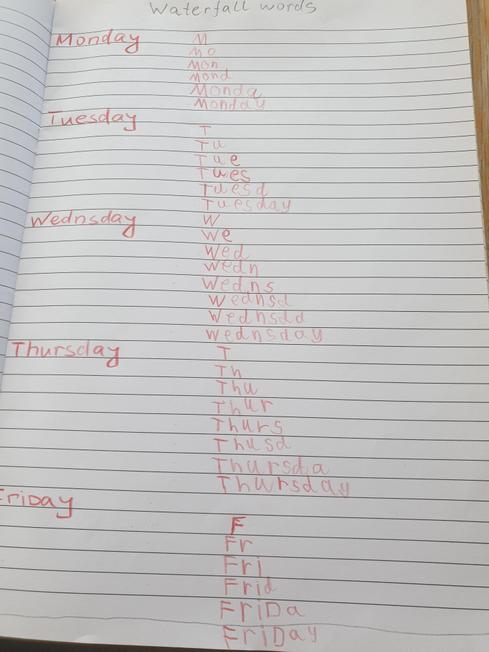 Waterfall words
Monday M
Mo
Mon
Mond
Monda
Monday
Tuesday T
Tu
Tue
Tues
Tuesd
Tuesday
Wednsday W
We
Wed
Wedn
Wedns
Wednsd
Wednsdd
Wednsday
Thursday T
Th
Thu
Thur
Thurs
Thusd
Thursda
Thursday
FriDay
F
Fr
Fri
Frid
FriDa
FriDay